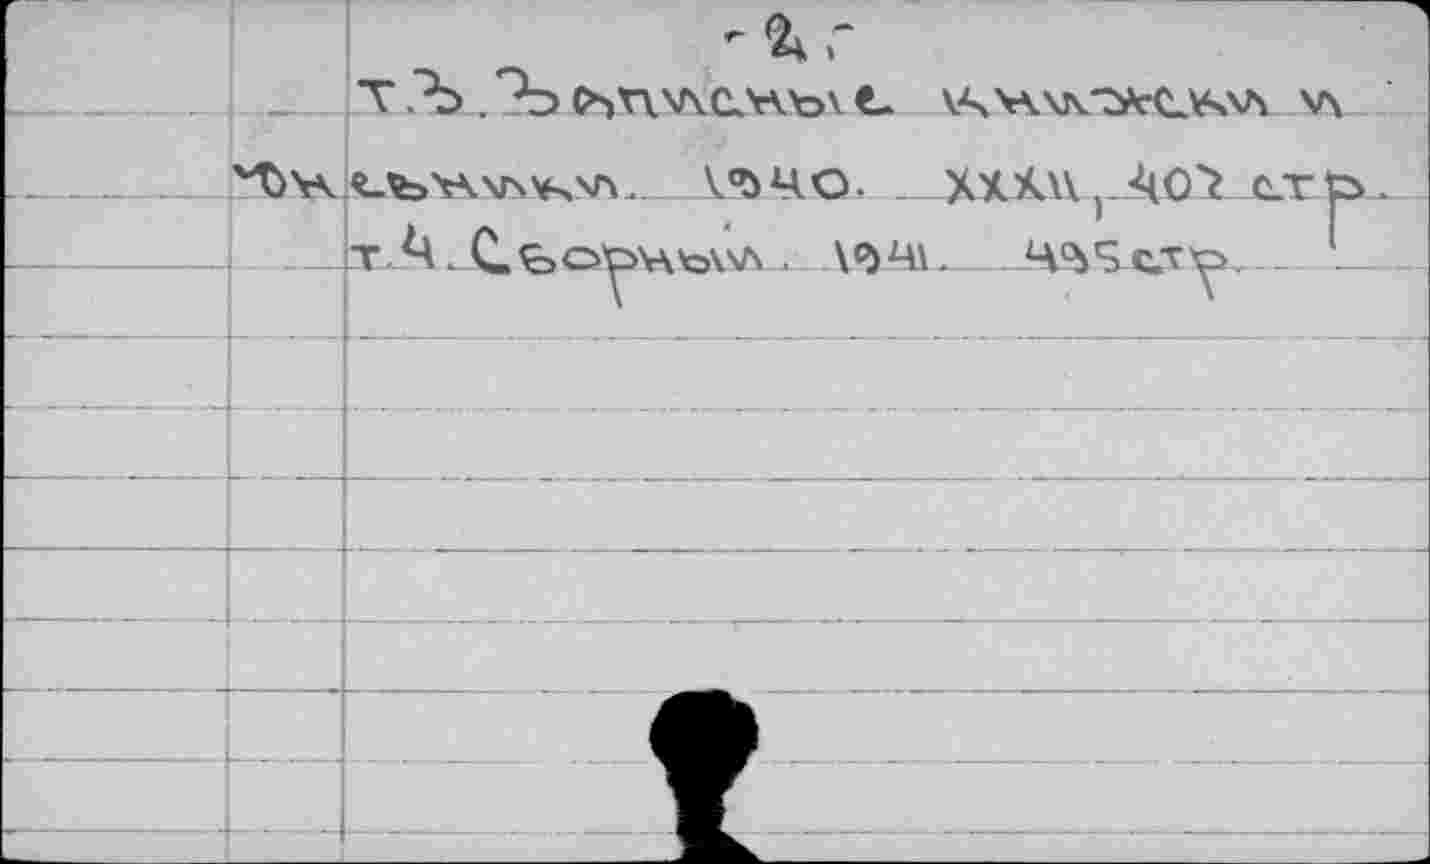 - 2 -
т.3. Записные книжки и
дневники. 1940. XXXII, 407 стр.
т.4. Сборный. 1941. 495 стр.